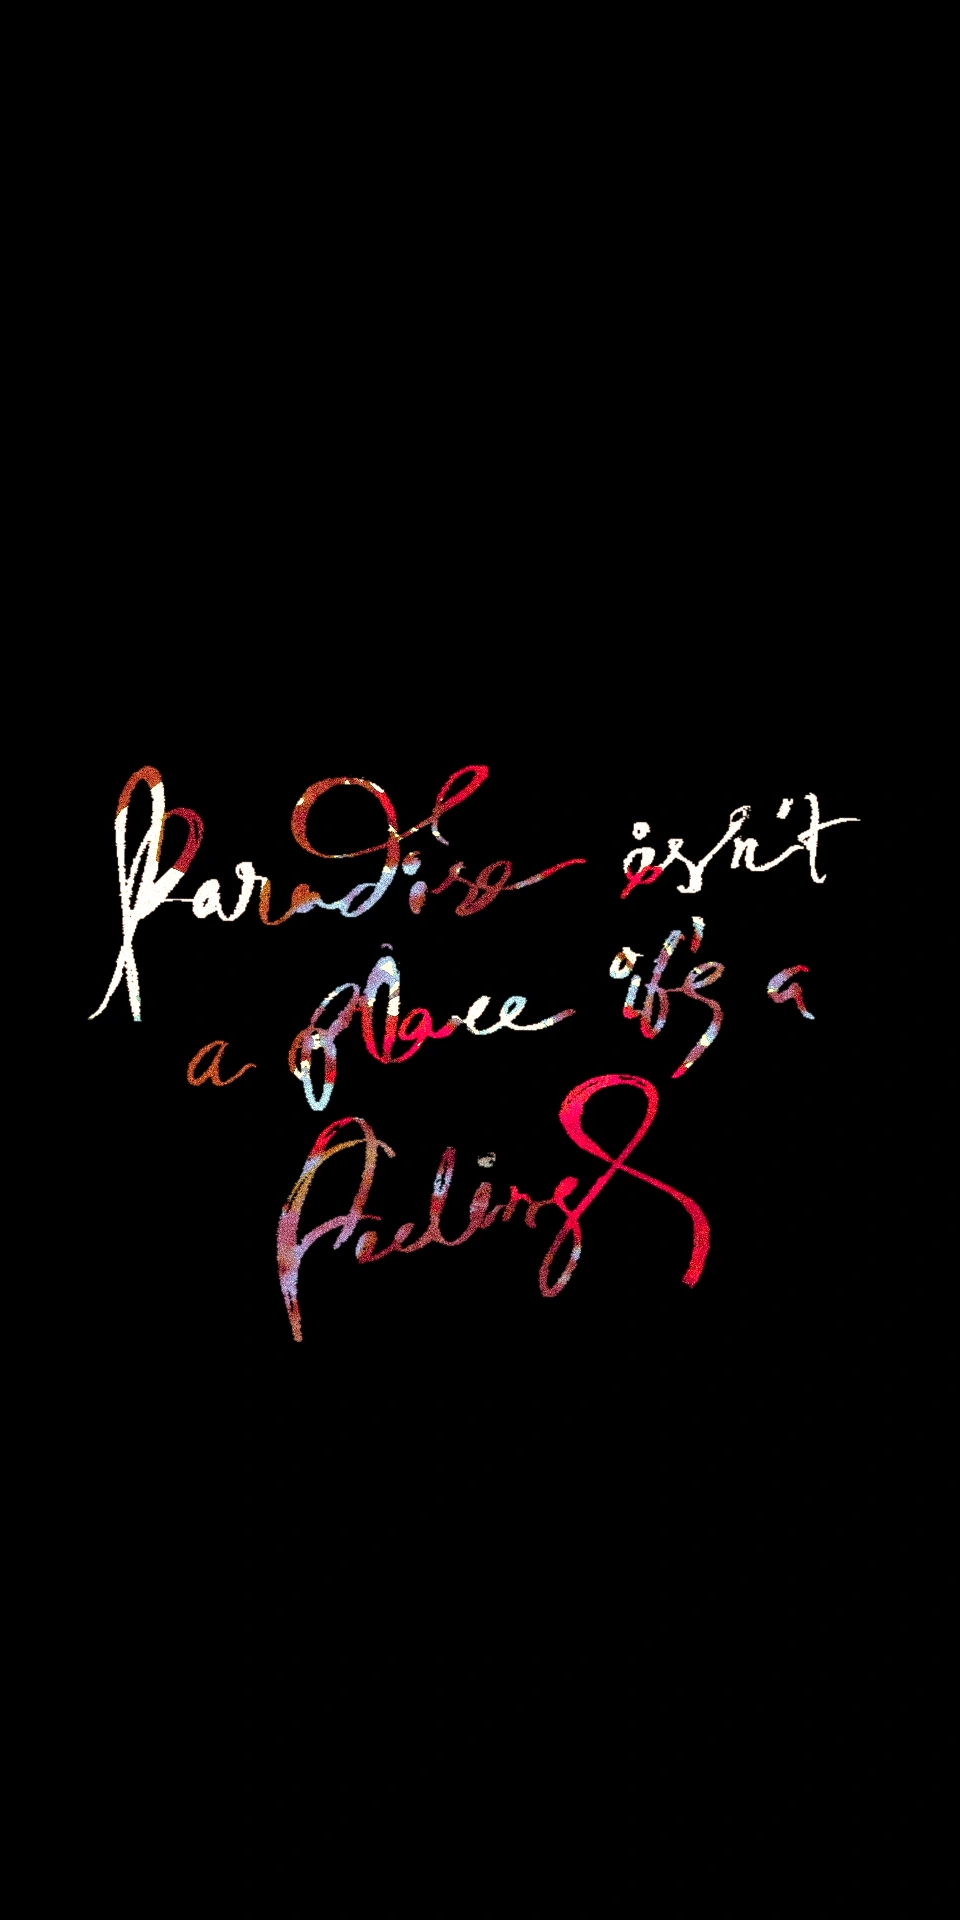 Paradise isn't
a place it's a
feeling